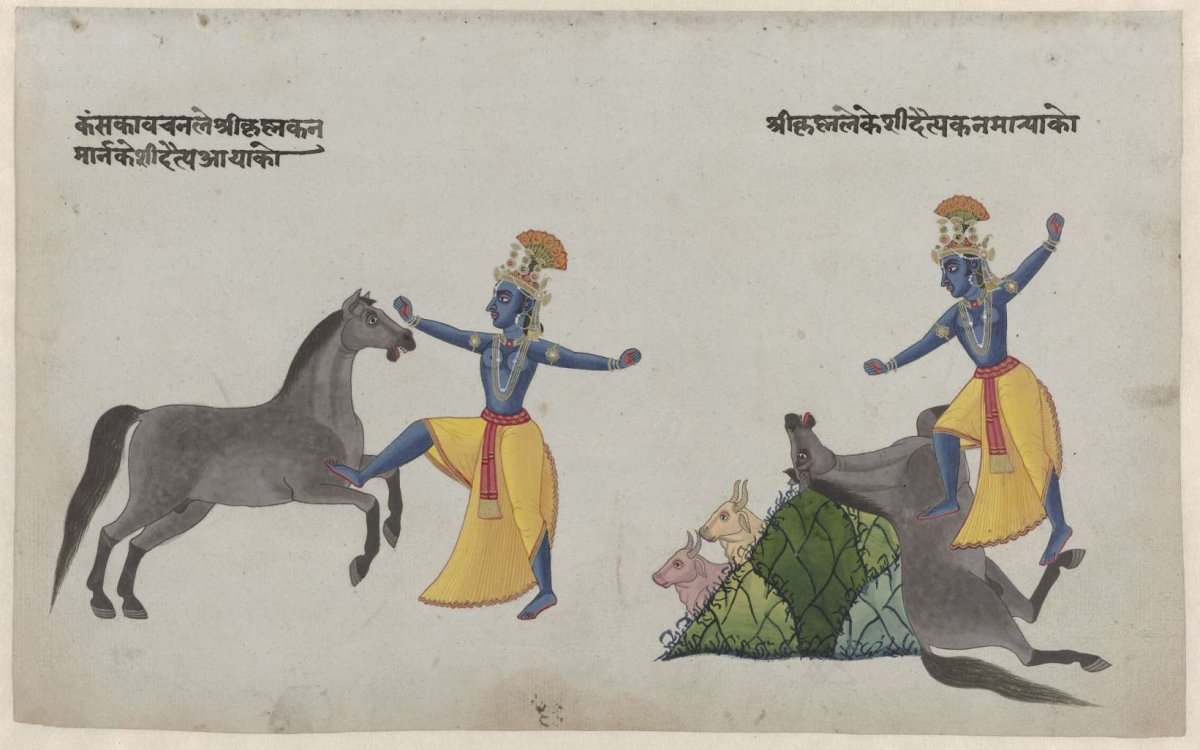 कंसकावचनलेश्रीकृह्नकन
मार्नकेशीदैत्यआयाको
श्रीकृह्नलेकेशीदैत्यकनमार्‍याको